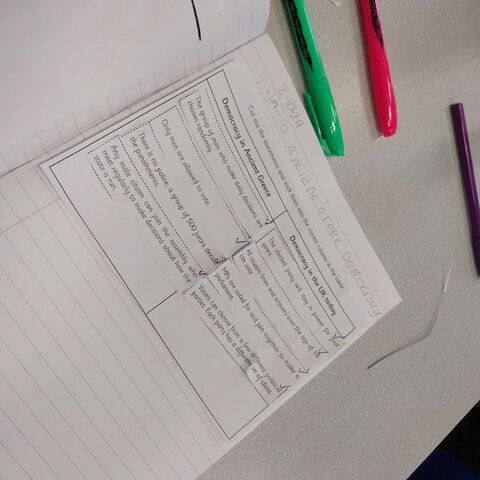 Ancient Greek Democracy
Cut out the statements and stick them into the correct column in the table.
Democracy in Ancient Greece
Democracy in the UK today
The group of men who make daily decisions are
chosen randomly.
Only men are allowed to vote
There is no police; a group of 500 jurors decide
the punishments.
Any male citizen can join the assembly who
meet regularly to make decisions about how the
state is run.
The elected party will stay in power for five
years.
All citizens (men and women) over the age of 18
can vote.
MPs are voted for and join together to make a
parliament.
Voters can choose from a few different political
parties. Each party has a different set of ideas.